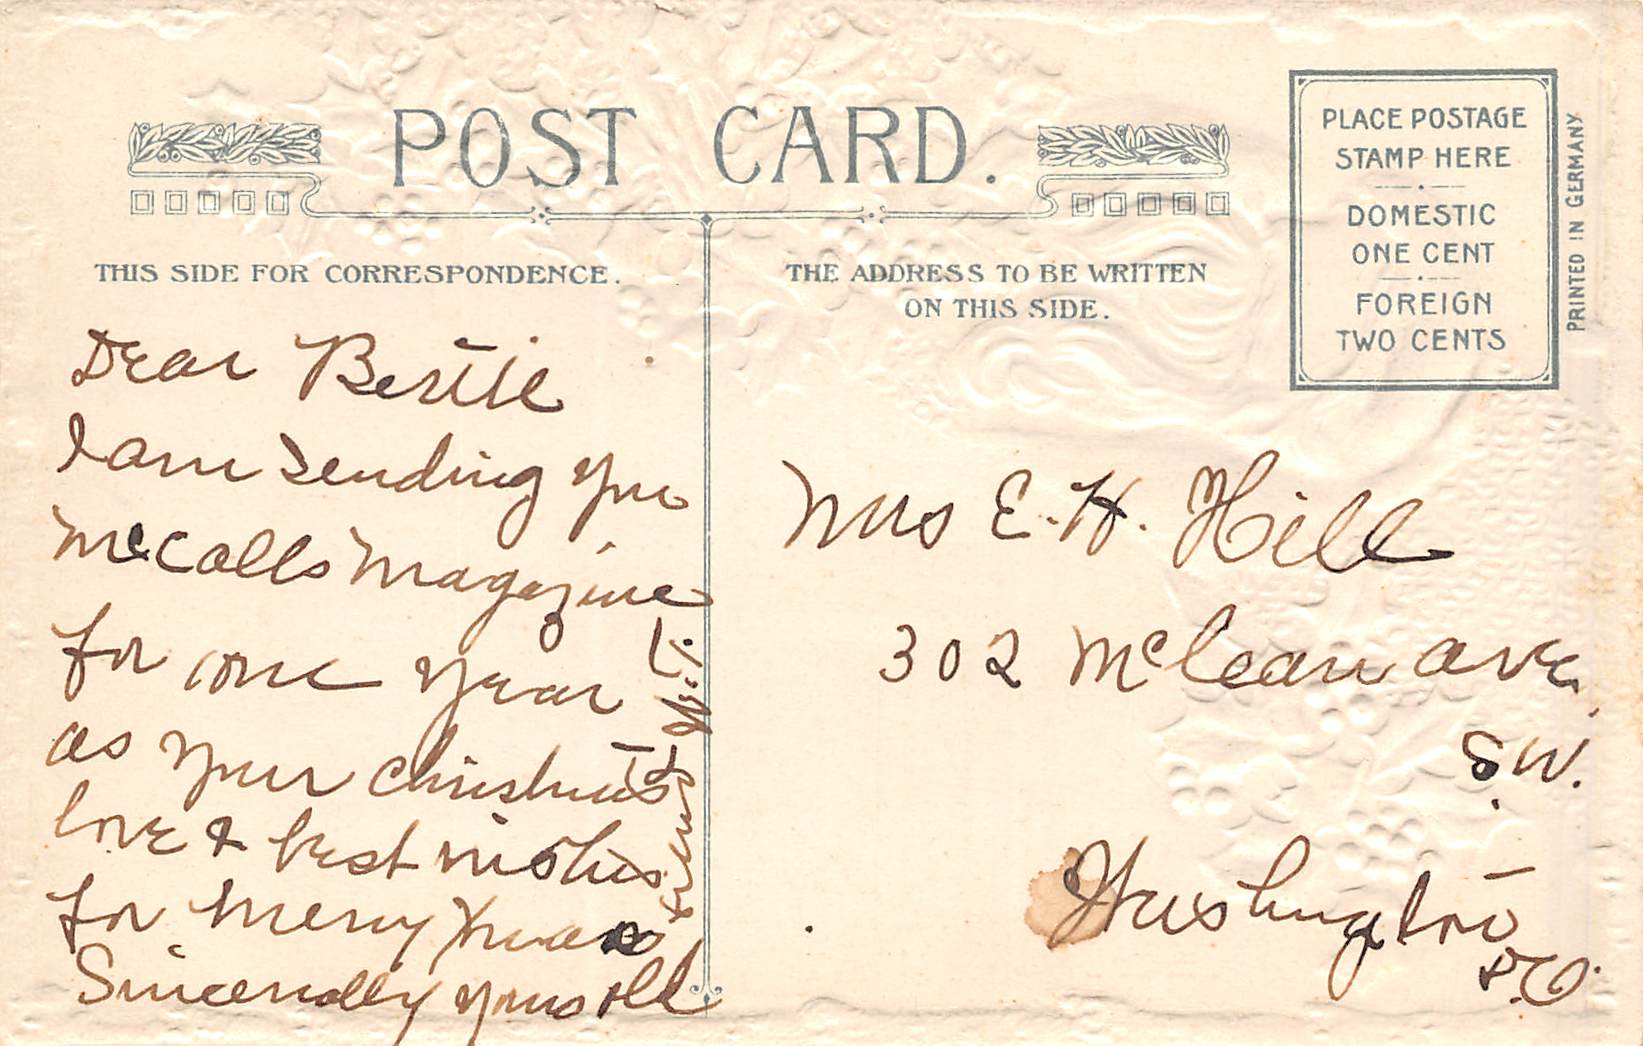 POST CARD.
THIS SIDE FOR CORRESPONDENCE.
THE ADDRESS TO BE WRITTEN
ON THIS SIDE.
PLACE POSTAGE
STAMP HERE
DOMESTIC
ONE CENT
FOREIGN
TWO CENTS
PRINTED IN GERMANY
Dear Bertie
I am sending you
McCalls Magazine
for one year
as your Christmas
love & best wishes
for Merry Xmas
Sincerely yours old
friend
Mrs E. H. Hill
302 McLean ave.
S.W.
Washington
D.C.